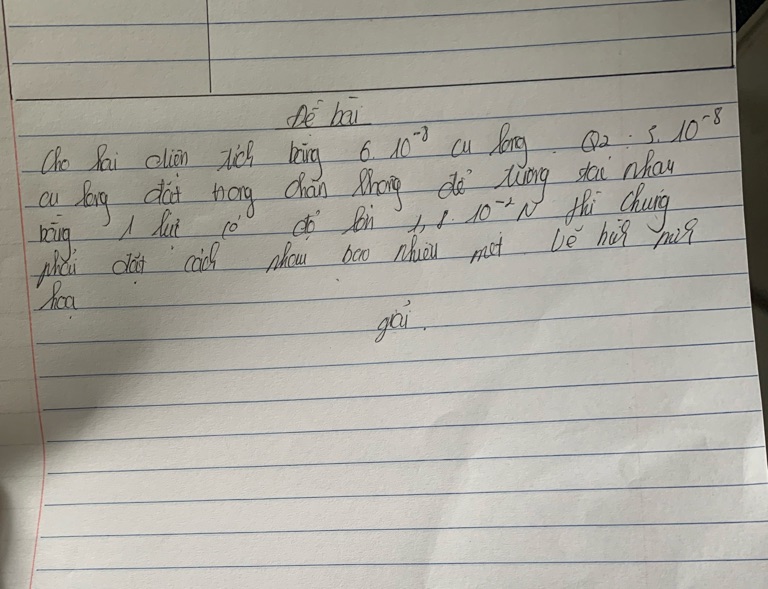 Đề bài
Cho hai điện tích bằng 6. 10⁻⁸ cu lông. Q2 = 5. 10⁻⁸
cu lông đặt trong chân không để tương tác nhau
bằng 1 lực có độ lớn 1,8. 10⁻² N thì chúng
phải đặt cách nhau bao nhiêu mét vẽ hình minh
hoạ
giải.